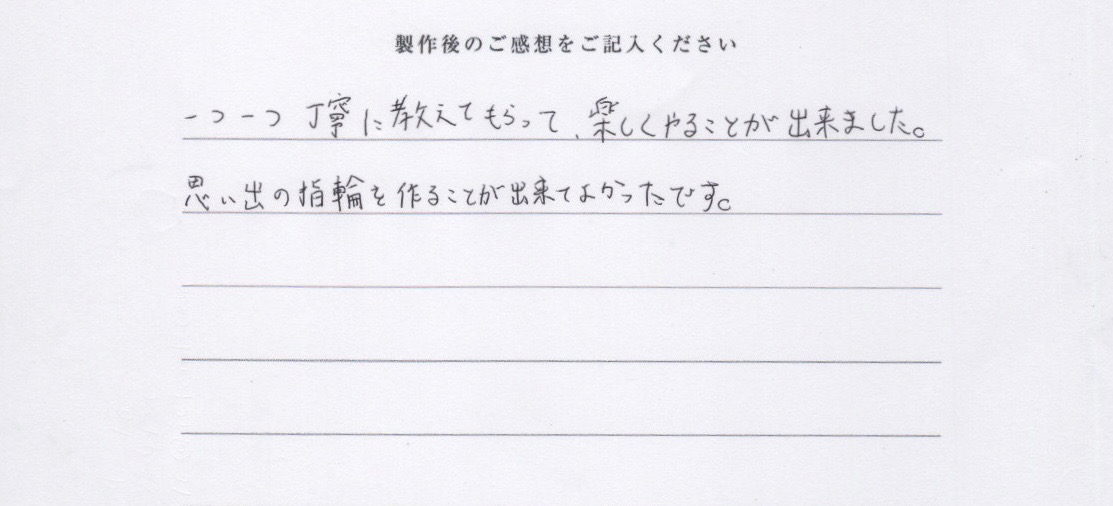 製作後のご感想をご記入ください
一つ一つ丁寧に教えてもらって、楽しくやることが出来ました。
思い出の指輪を作ることが出来てよかったです。